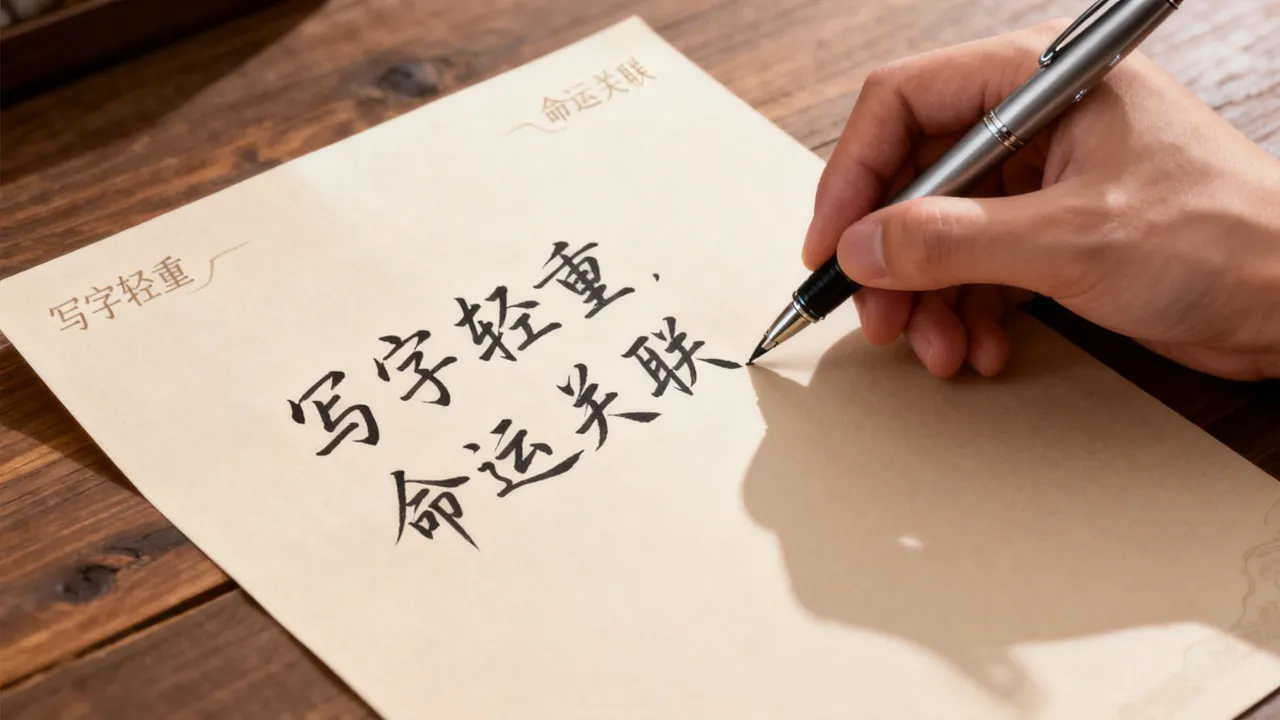 命运关联
写字轻重
写字轻重.
命运关联